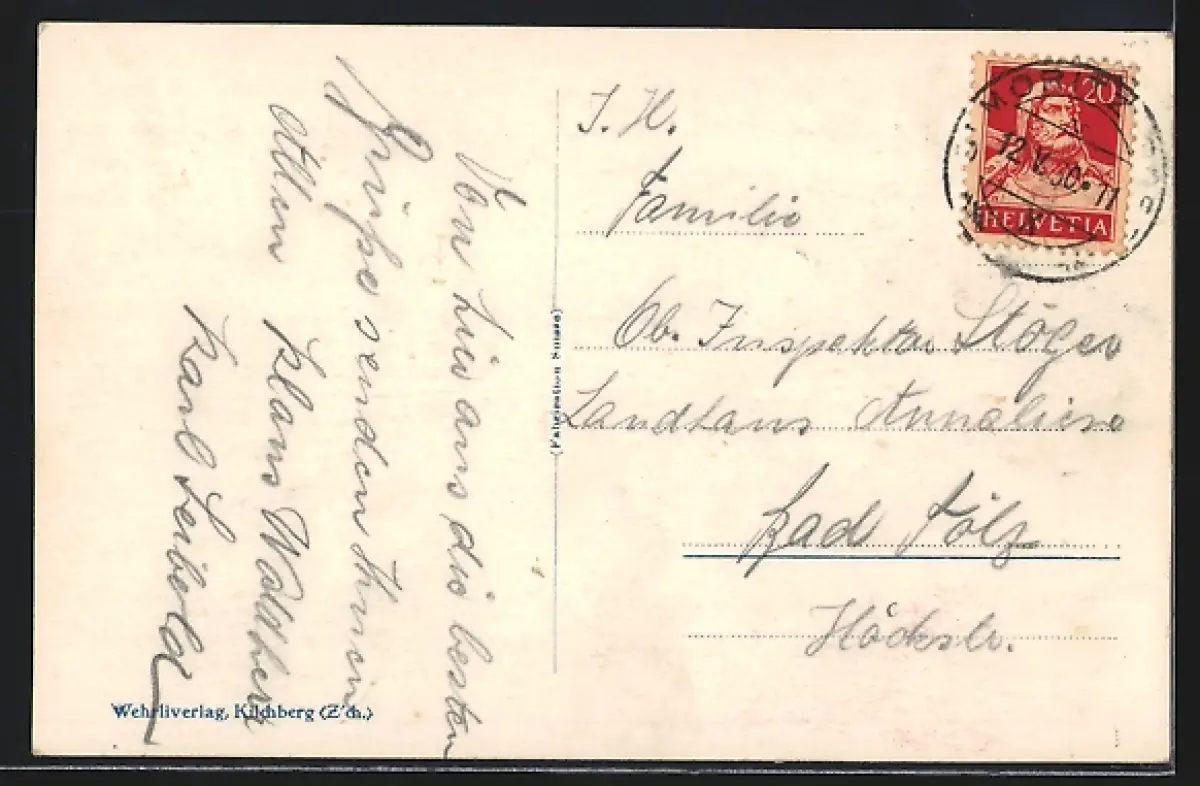 Von hier aus die besten
Grüße senden Ihnen
Allen Hans Walther
Karl Leibold
Wehrliverlag, Kilchberg (Z'ch.)
(Fabrication Suisse)
I. H.
Familie
Ob. Inspektor Stöger
Landhaus Annaliese
Bad Tölz
Höckstr.
20
HELVETIA
MORITZ
12.V.30.11